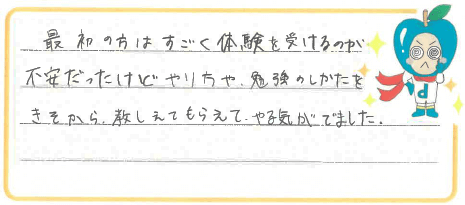 最初の方はすごく体験を受けるのが
不安だったけどやり方や、勉強のしかたを
きそから、教しえてもらえて、やる気がでました。
d